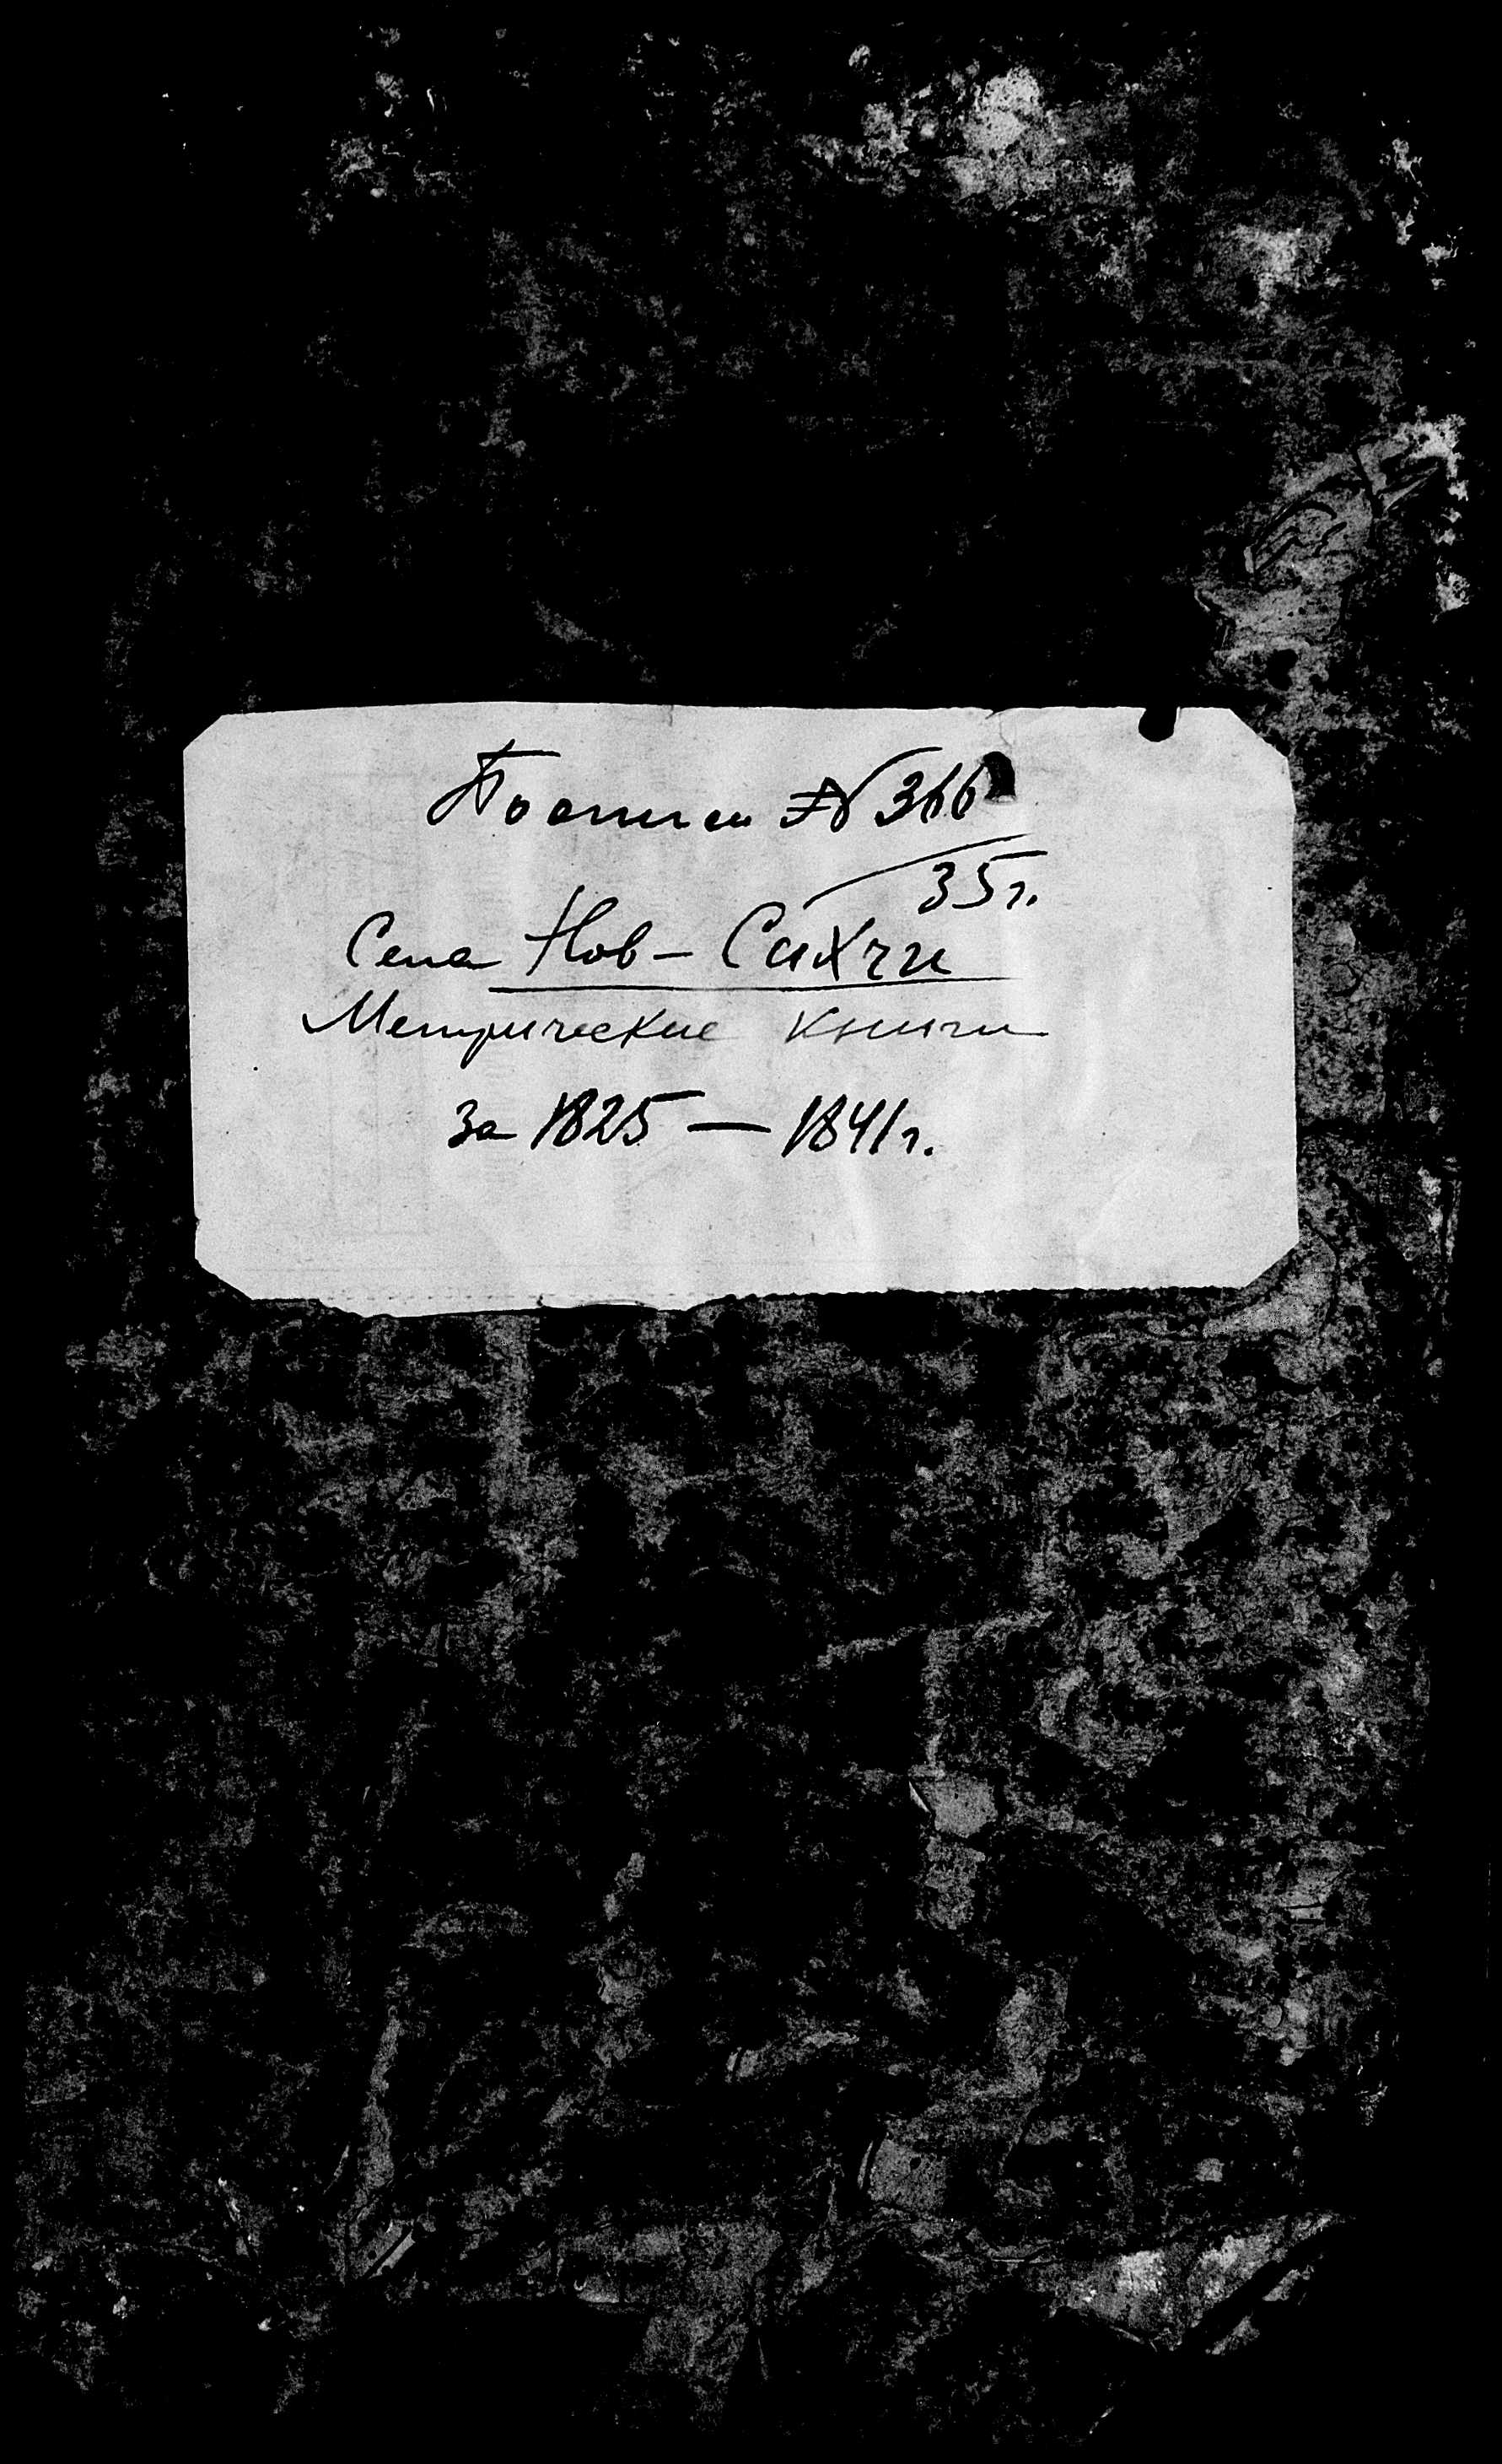 По описи № 366
35 г.
Села Нов-Сихчи
Метрические книги
за 1825 — 1841 г.